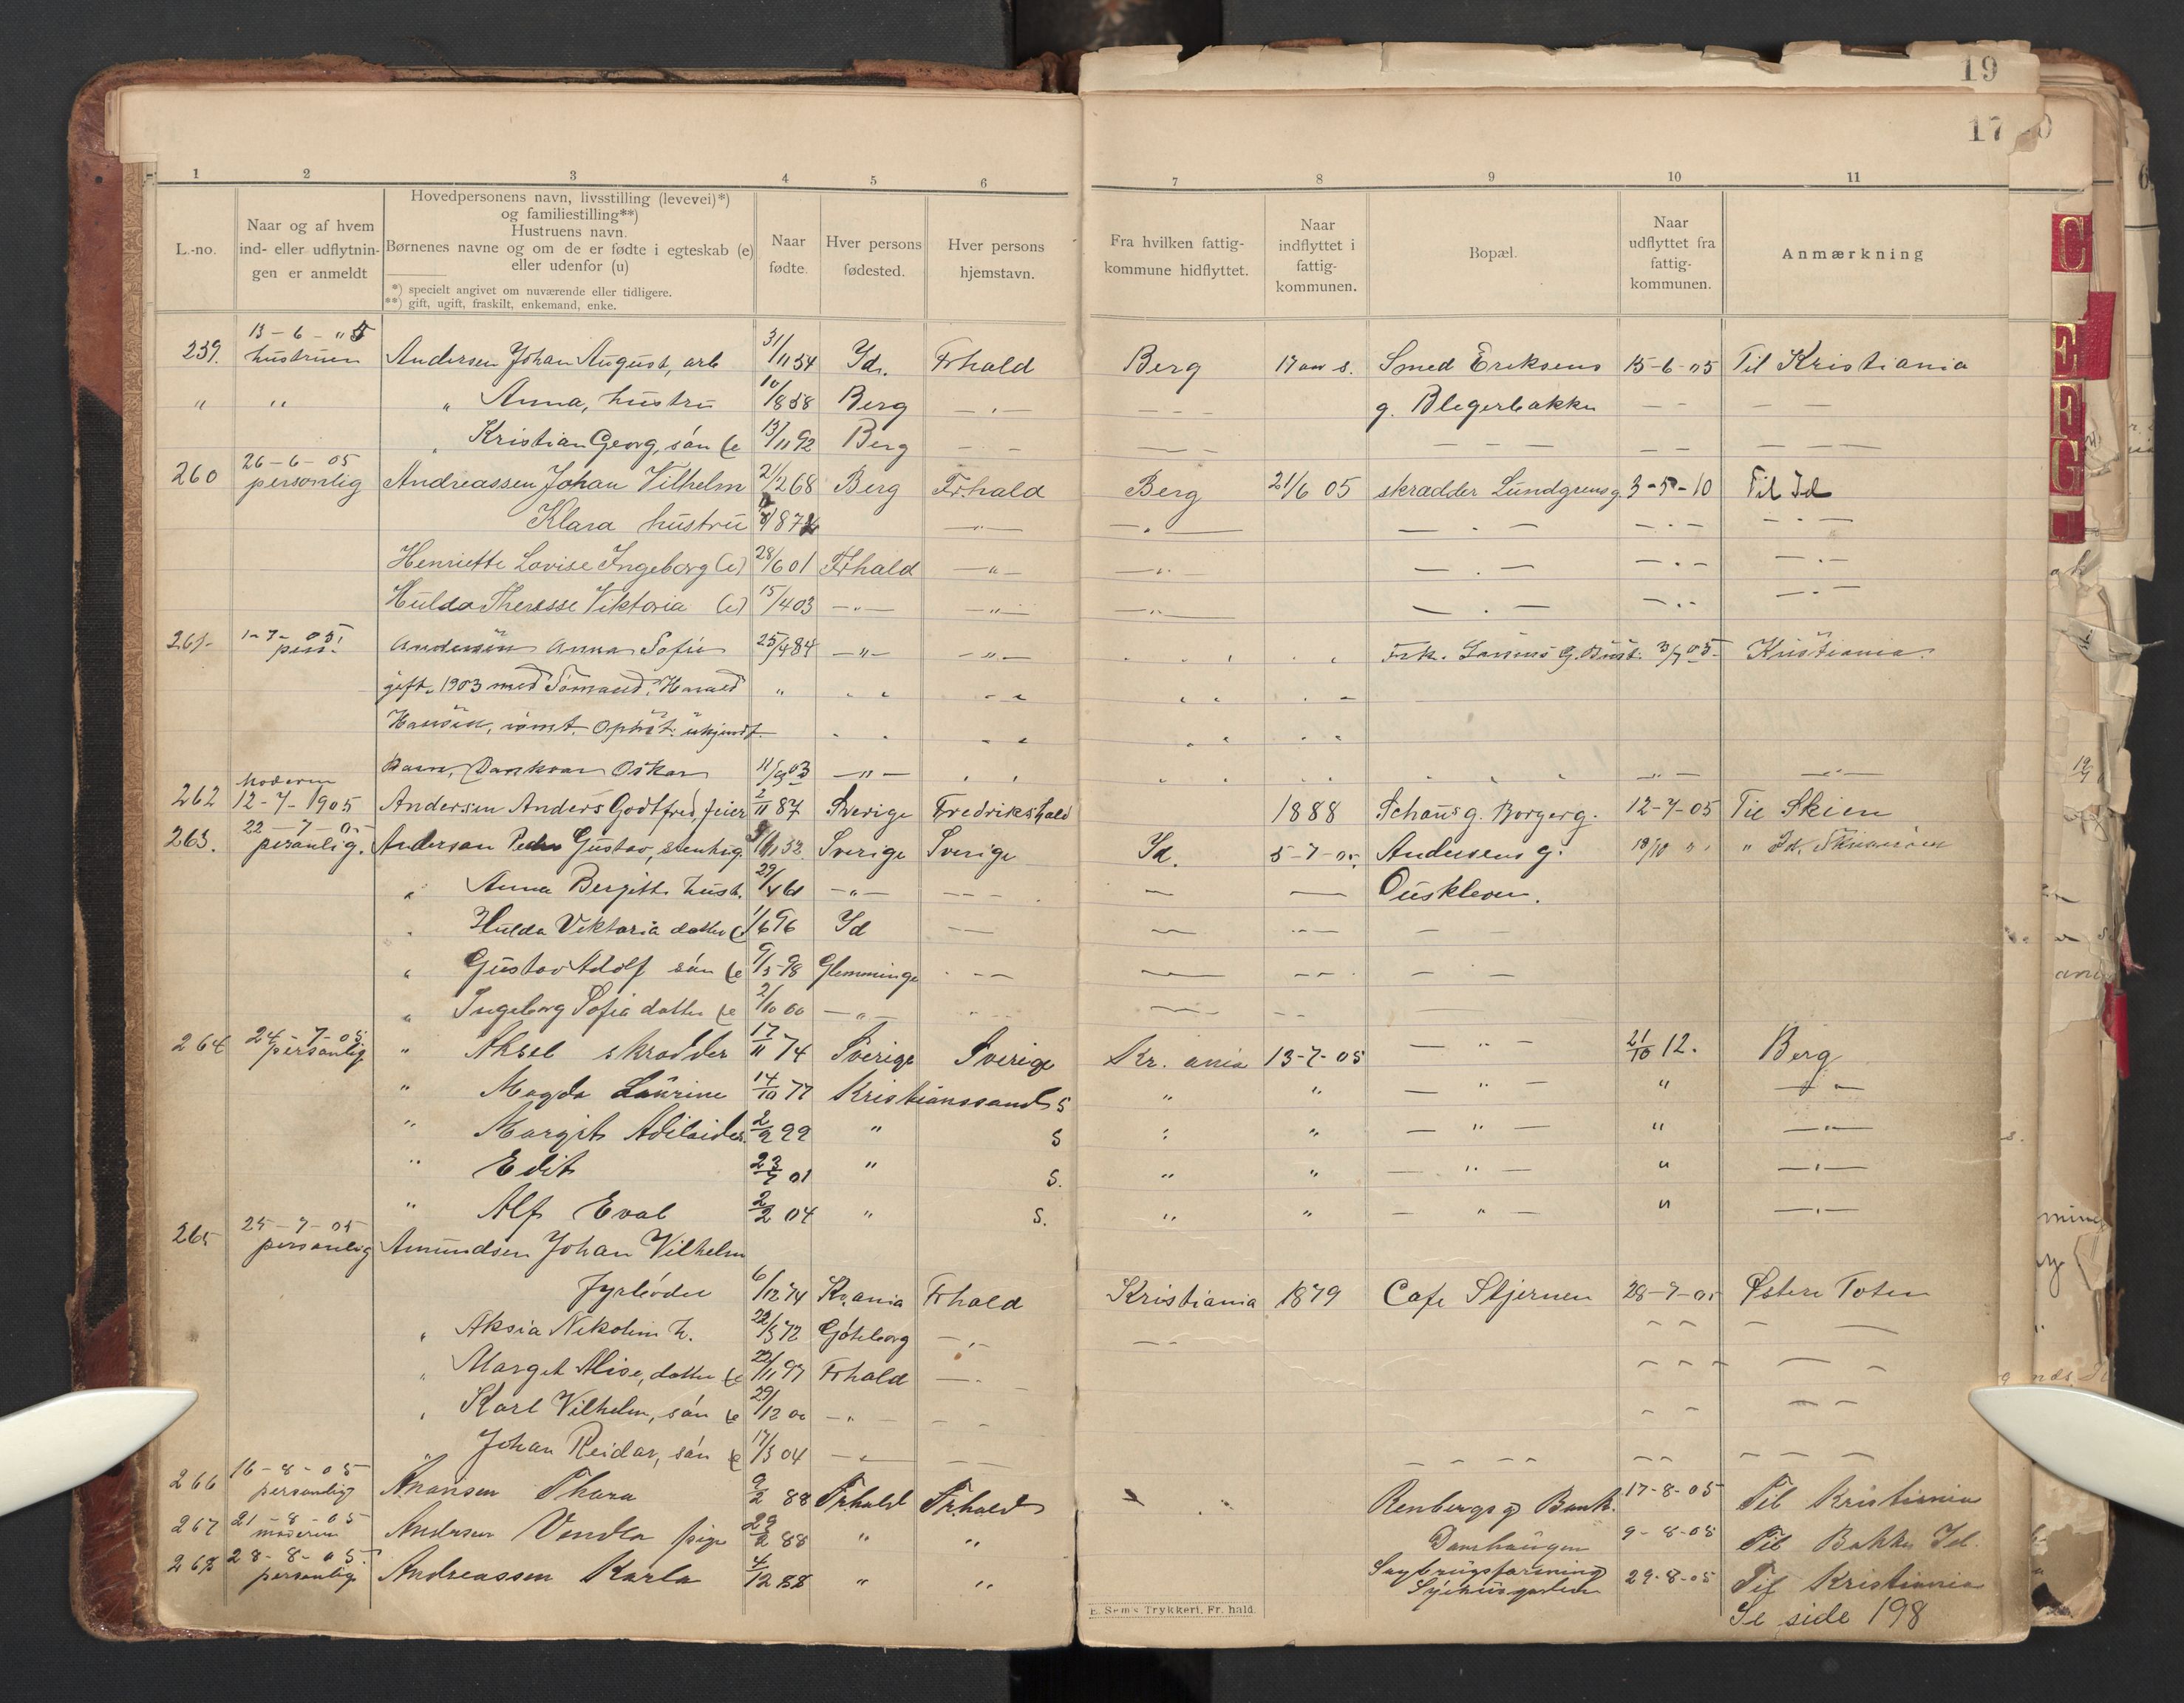 19
17
1 2 3 4 5 6 7 8 9 10 11
L.-no.
Naar og af hvem
ind- eller udflytnin-
gen er anmeldt
Hovedpersonens navn, livsstilling (levevei)*)
og familiestilling**)
Hustruens navn.
Børnenes navne og om de er fødte i egteskab (e)
eller udenfor (u)
*) specielt angivet om nuværende eller tidligere.
**) gift, ugift, fraskilt, enkemand, enke.
Naar
fødte.
Hver persons
fødested.
Hver persons
hjemstavn.
Fra hvilken fattig-
kommune hidflyttet.
Naar
indflyttet i
fattig-
kommunen.
Bopæl.
Naar
udflyttet fra
fattig-
kommunen.
Anmærkning
13-6-"5
259. hustruen Andersen Johan August, arb 31/11 54 Id. Frhald Berg 17 aar s. Smed Eriksens 15-6-05 Til Kristiania
" " " Anna, hustru 10/8 58 Berg — " — — — — g. Blegerbakken — — — —
" Kristian Georg, sön (e 13/11 92 Berg — — — — — — — — — — — — —
26-6-05
260 personlig Andreassen Johan Vilhelm 21/2 68 Berg Frhald Berg 21/6 05 skrædder Lundgrens g. 3-5-10 Til Id
Klara hustru 87 — " — — " — — " — — " — — " —
Henriette Lovise Ingeborg (e) 28/6 01 Frhald — " — — " — — " — — " — — " —
Hulda Theresse Viktoria (e) 15/4 03 — " — — " — — " — — " — — " — — " —
261 1-7-05. pers. Andersen Anna Sofie 25/4 84 — " — — " — " " " " Frk. G. 3/7 05. Kristiania.
gift. 1903 med Sömand, Harald " " " " " " " " "
Hansen, römt. Ophst. ukjendt. " " " " " " " "
Barn, Oskar 11/9 03 — " — " " " " " " " " " — " — — " —
Moderen
262 12-7-1905 Andersen Anders Godtfred, feier 2/11 87 Sverige Fredrikshald 1888 Schaus g. Borgerg. 12-7-05 Til Skien
22-7-05
263. personlig. Anderson Peder Gustav, stenhug. 52 Sverige Sverige Id. 5-7-05 Andersens g. 18/10 " " Id.
" Anna Bergitte hust. 29/4 61 — " — — — — — Ouskleven.
" Hulda Viktoria datter (e 1/6 96 Id — — — — — — —
" Gustav Adolf sön (e 9/5 98 Glemminge — — — — — — —
" Ingeborg Sofia datter (e 2/10 00 — " — — — —
24-7-05
264 personlig " Aksel skrædder 17/11 74 Sverige Sverige Kr. ania 13-7-05 — " — 21/10 12. Berg
" Magda Laurine 14/10 77 Kristianssand S " " — " — " — " —
" Margit Adilaide 2/2 99 " S " " — " — " — " —
" Edit 01 " S. " " — " — " — " —
" Alf Eval 2/2 04 " S. " " — " — " — " —
25-7-05
265 personlig Amundsen Johan Vilhelm
Fyrböder 6/12 74 Kr.ania Frhald Kristiania 1879 Cafe Stjernen 28-7-05 Østre Toten
" Aksia Nikolin h. 22/5 72 Göteborg — " — — — — — — —
" Marget Alise, datter (e 22/11 97 Frhald — " — — — — — — —
" Karl Vilhelm, sön (e 29/12 00 — " — — — — — — —
" Johan Reidar, sön (e 17/5 04 — " — — — — — — — — — — — —
16-8-05
266 personlig Thora 9/2 88 Frhald Frhald " " Renbergs g Bank. 17-8-05 Til Kristiania
21-8-05
267 moderen Andersen Vendla pige 29/2 88 " " Damhaugen 9-8-05 Til Bakke Id.
28-8-05.
268 personlig Andreassen Karla 4/12 88 " " Sagbrugsforening 29-8-05 Til Kristiania
Se side 198
E. Sem's Trykkeri, Fr.hald.
C
E
F
G